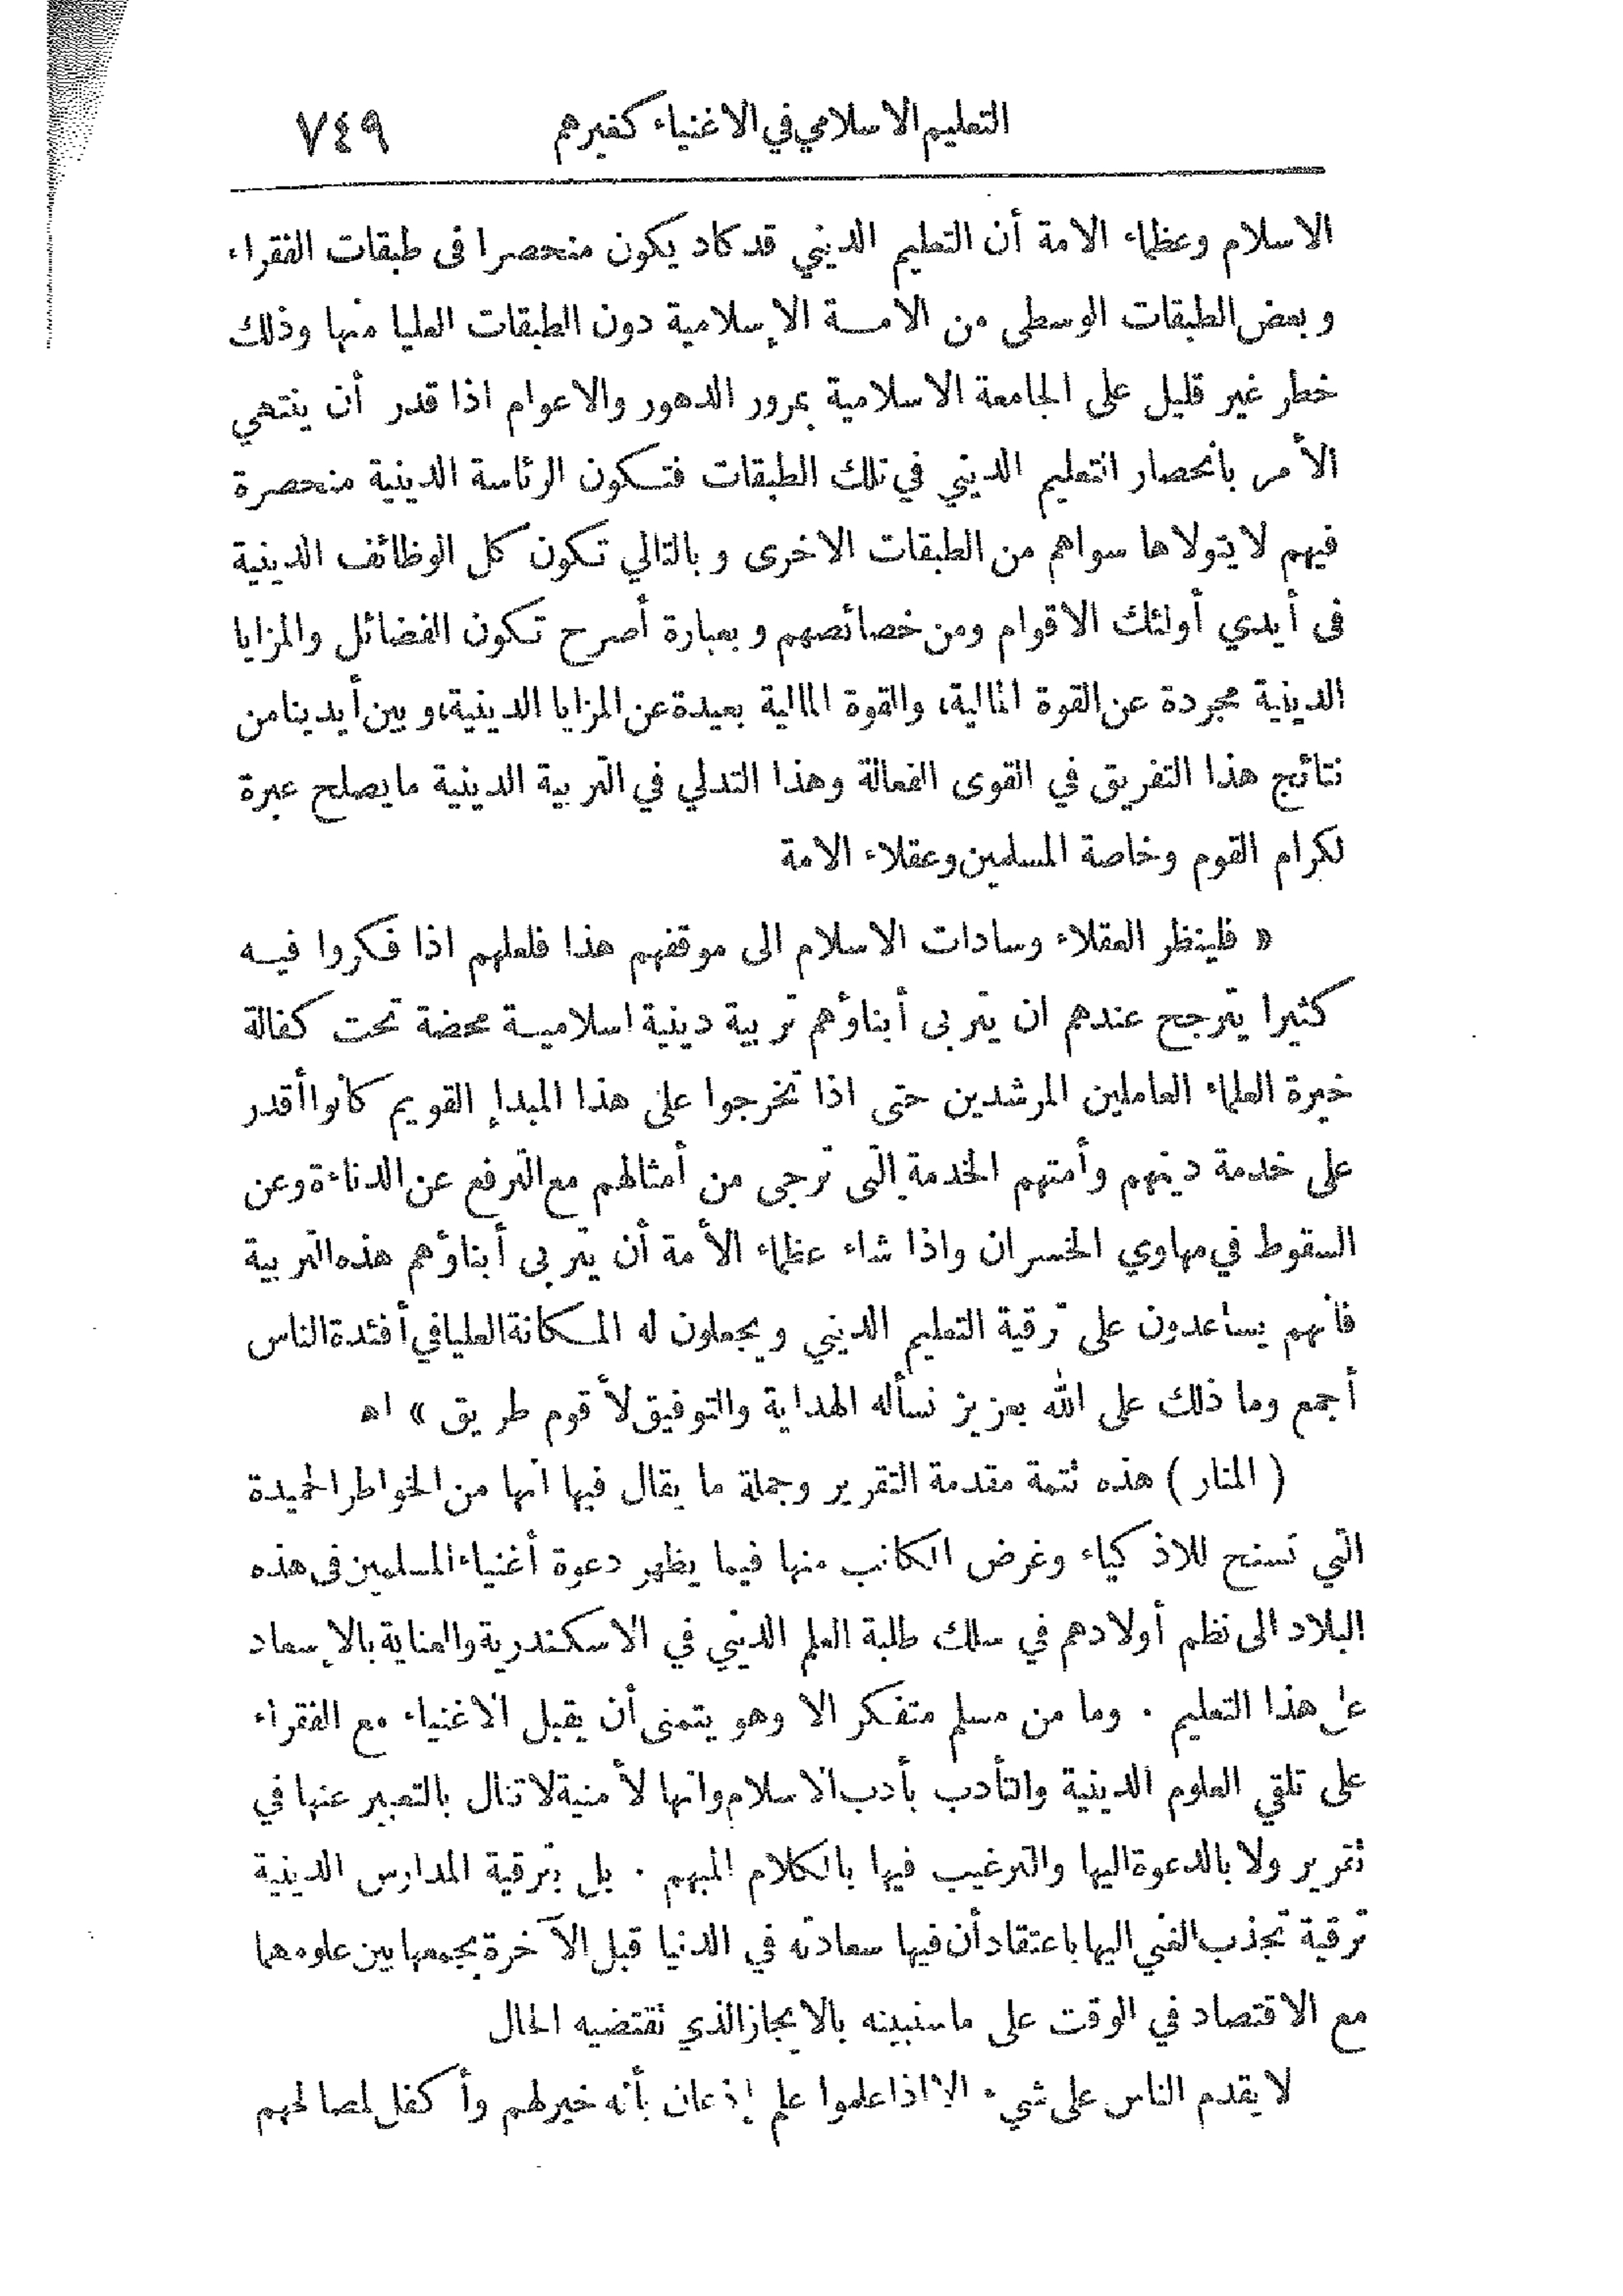 التعليم الاسلامي في الاغنياء كغيرهم ٧٤٩
الاسلام وعظماء الامة أن التعليم الديني قد كاد يكون منحصرا فى طبقات الفقراء
وبعض الطبقات الوسطى من الامــة الإسلامية دون الطبقات العليا منها وذلك
خطر غير قليل على الجامعة الاسلامية بمرور الدهور والاعوام اذا قدر أن ينتهي
الأمر بانحصار التعليم الديني في تلك الطبقات فتكون الرئاسة الدينية منحصرة
فيهم لا يتولاها سواهم من الطبقات الاخرى وبالتالي تكون كل الوظائف الدينية
فى أيدي أولئك الاقوام ومن خصائصهم وبعبارة أصرح تكون الفضائل والمزايا
الدينية مجردة عن القوة المالية، والقوة المالية بعيدة عن المزايا الدينية، وبين أيدينا من
نتائج هذا التفريق في القوى الفعالة وهذا التدلي في التربية الدينية ما يصلح عبرة
لكرام القوم وخاصة المسلمين وعقلاء الامة
« فلينظر العقلاء وسادات الاسلام الى موقفهم هذا فلعلهم اذا فكروا فيــه
كثيرا يترجح عندهم ان يتربى أبناؤهم تربية دينية اسلاميــة محضة تحت كفالة
خيرة العلماء العاملين المرشدين حتى اذا تخرجوا على هذا المبدإ القويم كانوا أقدر
على خدمة دينهم وأمتهم الخدمة التى ترجى من أمثالهم مع الترفع عن الدناءة وعن
السقوط في مهاوي الخسران واذا شاء عظماء الأمة أن يتربى أبناؤهم هذه التربية
فانهم يساعدون على ترقية التعليم الديني ويجعلون له المكانة العليا في أفئدة الناس
أجمع وما ذلك على الله بعزيز نسأله الهداية والتوفيق لأقوم طريق » اه
( المنار ) هذه تتمة مقدمة التقرير وجملة ما يقال فيها انها من الخواطر الحميدة
التي تسنح للاذكياء وغرض الكاتب منها فيما يظهر دعوة أغنياء المسلمين فى هذه
البلاد الى نظم أولادهم في سلك طلبة العلم الديني في الاسكندرية والعناية بالإسعاد
على هذا التعليم . وما من مسلم متفكر الا وهو يتمنى أن يقبل الاغنياء مع الفقراء
على تلقي العلوم الدينية والتأدب بأدب الاسلام وانها لأمنية لا تنال بالتعبير عنها في
تقرير ولا بالدعوة اليها والترغيب فيها بالكلام المبهم . بل بترقية المدارس الدينية
ترقية تجذب الغني اليها باعتقاد أن فيها سعادته في الدنيا قبل الآخرة بجمعها بين علومهما
مع الاقتصاد في الوقت على ما سنبينه بالايجاز الذي تقتضيه الحال
لا يقدم الناس على شيء الا اذا علموا علم إذعان بأنه خير لهم وأكفل لمصالحهم